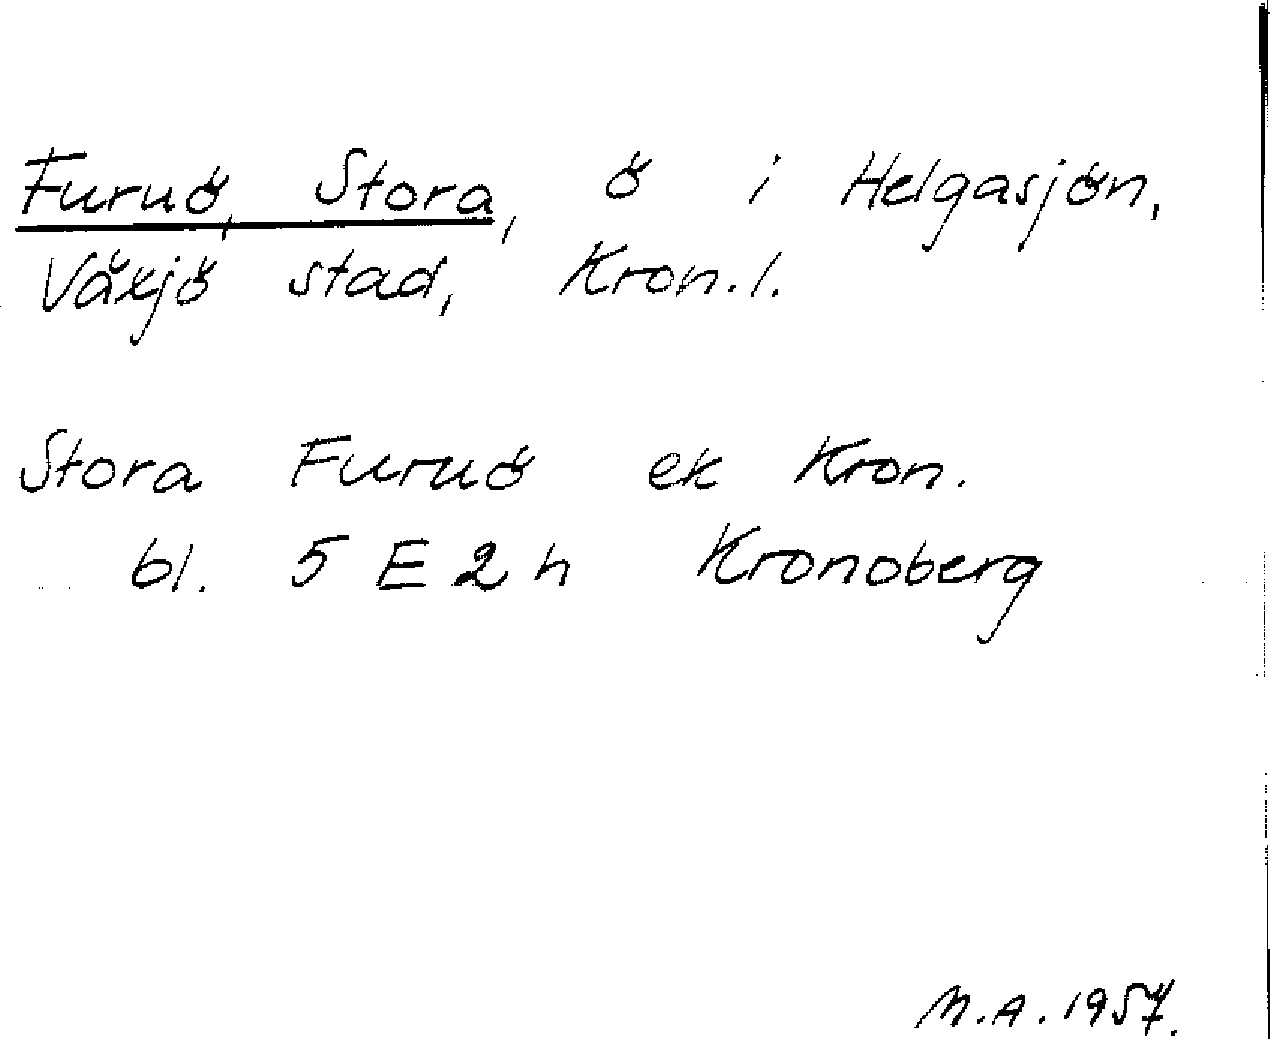 Furuö, Stora, ö i Helgasjön,
Växjö stad, Kron.l.
Stora Furuö ek Kron.
bl. 5 E 2 h Kronoberg
M.A. 1957.